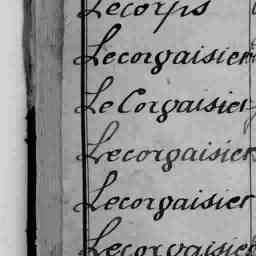 Lecorps
Lecorgaisier
Le Corgaisier
Lecorgaisier
Lecorgaisier
Lecorgaisier